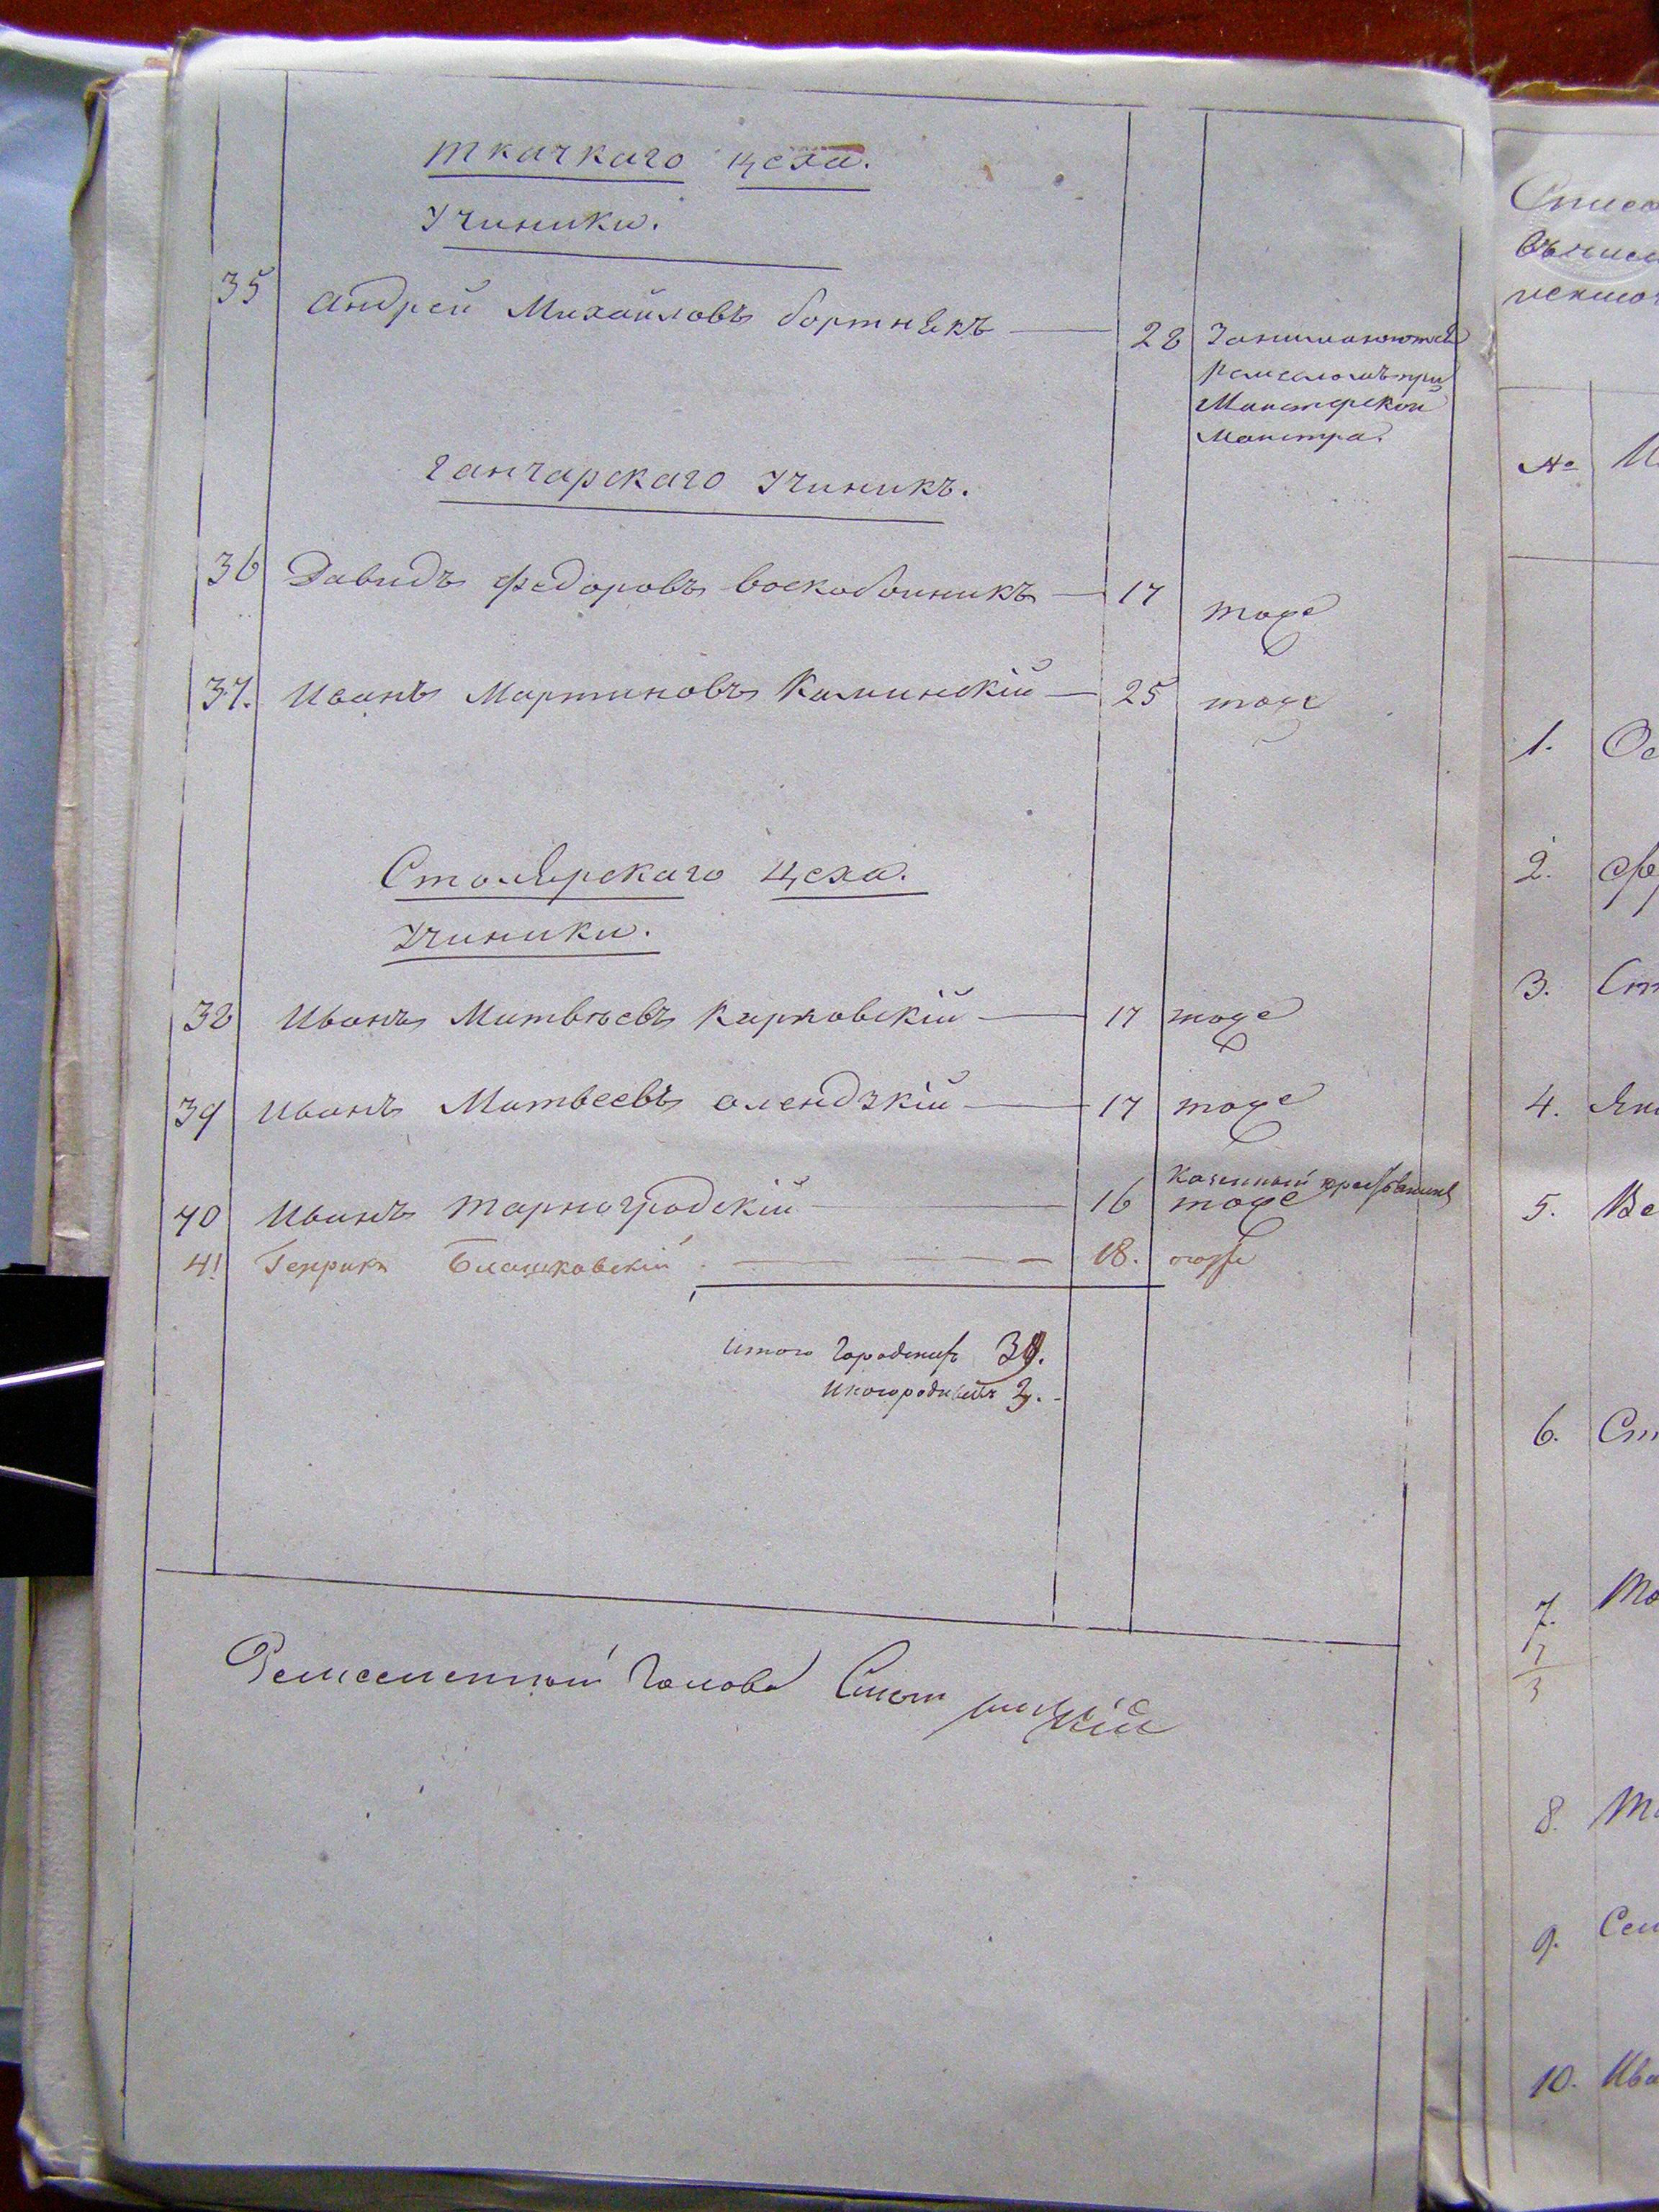 ткачкаго цеха.
Учиники.
35 андрей Михайловъ бортнякъ — 28 Занимаются
ремесломъ при
Мастерской
Маистра.
ганчарскаго Учиникъ.
36 Давидъ федоровъ воскобоиникъ — 17 тоже
37. Иванъ Мартиновъ Каминскій — 25 тоже
Столярскаго цеха.
Учиники.
38 Иванъ Митвѣевъ Карповскій — 17 тоже
39 Иванъ Матвеевъ олендзкій — 17 тоже
Казенный крестьянинъ
40 Иванъ тарногродскій — 16 тоже
41 Генрикъ Блашковскій — 18. тоже
итого Городских
Иногородныхъ
Ремесленный Голова
Списо
въ числ
№ И
1. Ос
2. Фр
3. Ст
4. Як
5. Ва
6. Ст
7. То
1
3
8.
9. Сем
10. Ива